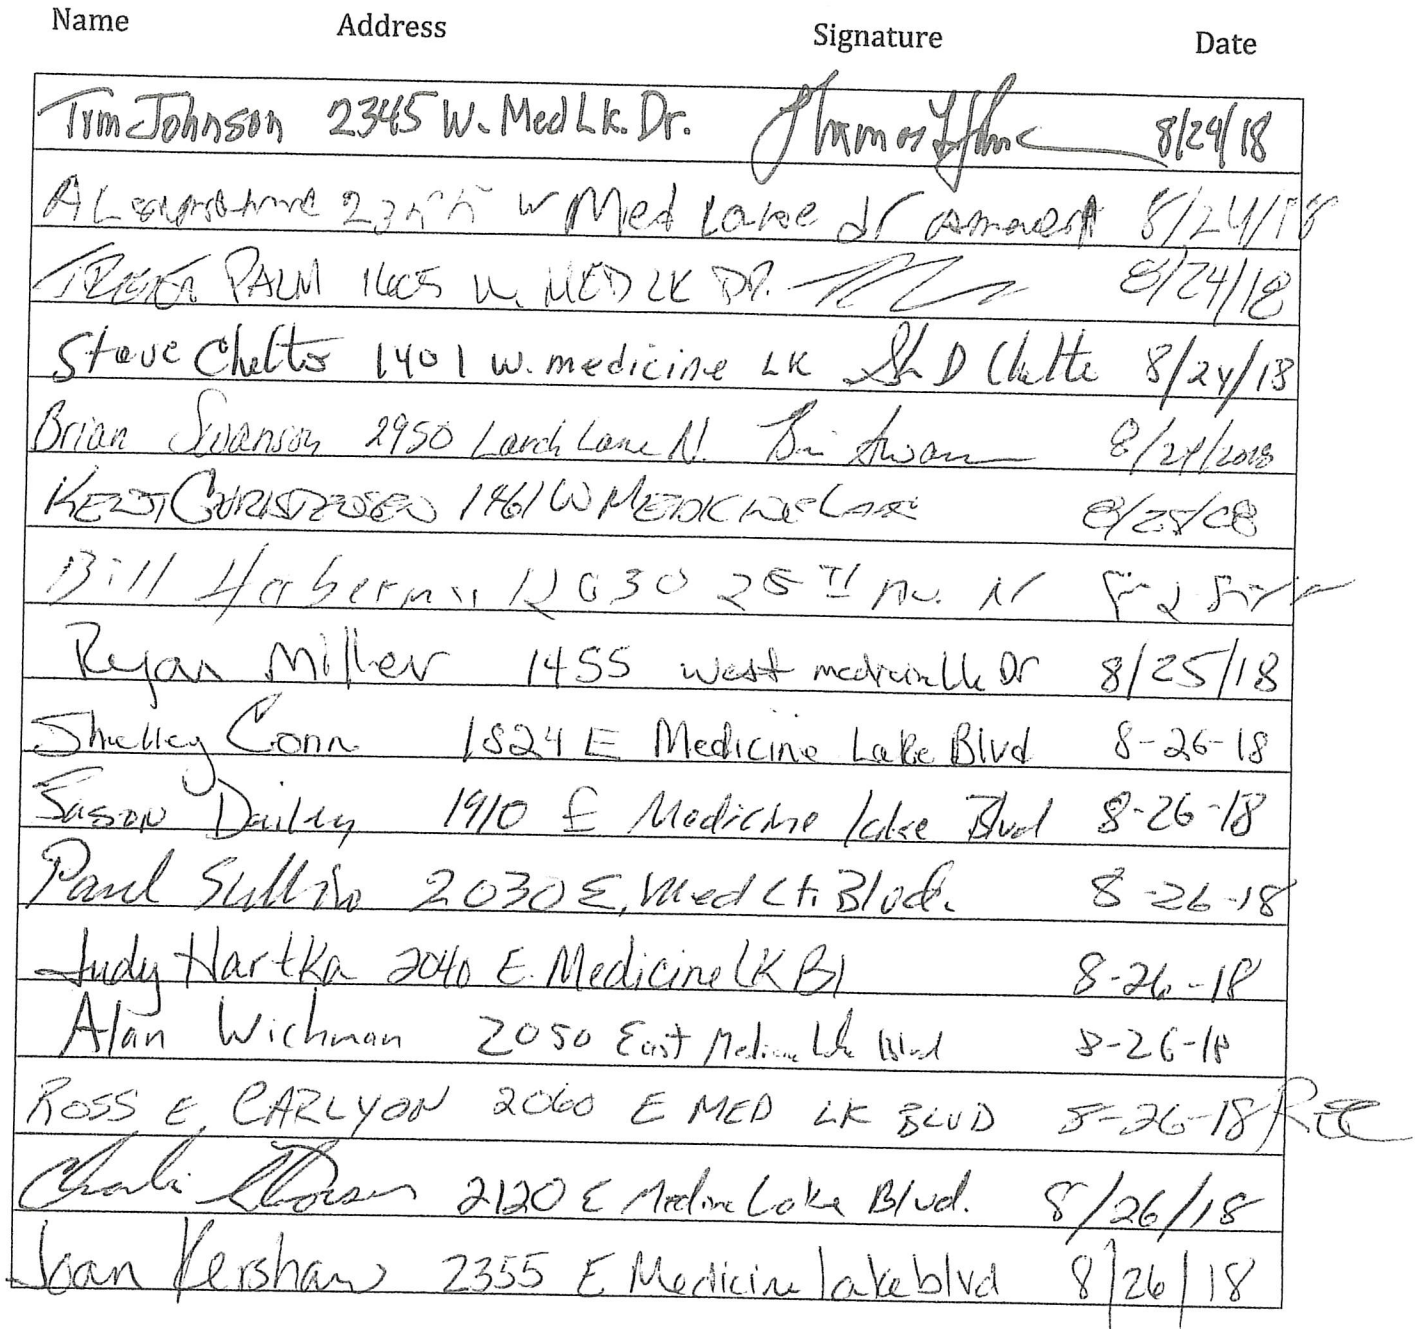 Name Address Signature Date
Tim Johnson 2345 W. Med Lk. Dr. 8/24/18
W Med Lake dr 8/24/18
PALM 1605 W. MED LK DR. 8/24/18
Steve 1401 W. medicine LK 8/24/18
Brian Swanson 2950 Larch Lane N. Brian Swanson 8/24/2018
1461 W MEDICINE LAKE
Bill 25TH Av. N
Ryan Miller 1455 west medicine lk Dr 8/25/18
Shelley Conn 1824 E Medicine Lake Blvd 8-26-18
Dailey 1910 E Medicine lake Blvd 8-26-18
Paul 2030 E. Med Blvd. 8-26-18
Judy Hartka 2040 E. Medicine LK Bl 8-26-18
Alan Wichman 2050 East Medicine Lake Blvd 8-26-18
ROSS E. CARLYON 2060 E MED LK BLVD 8-26-18 REC
2120 E Medicine Lake Blvd. 8/26/18
Joan Kershaw 2355 E Medicine lake blvd 8/26/18